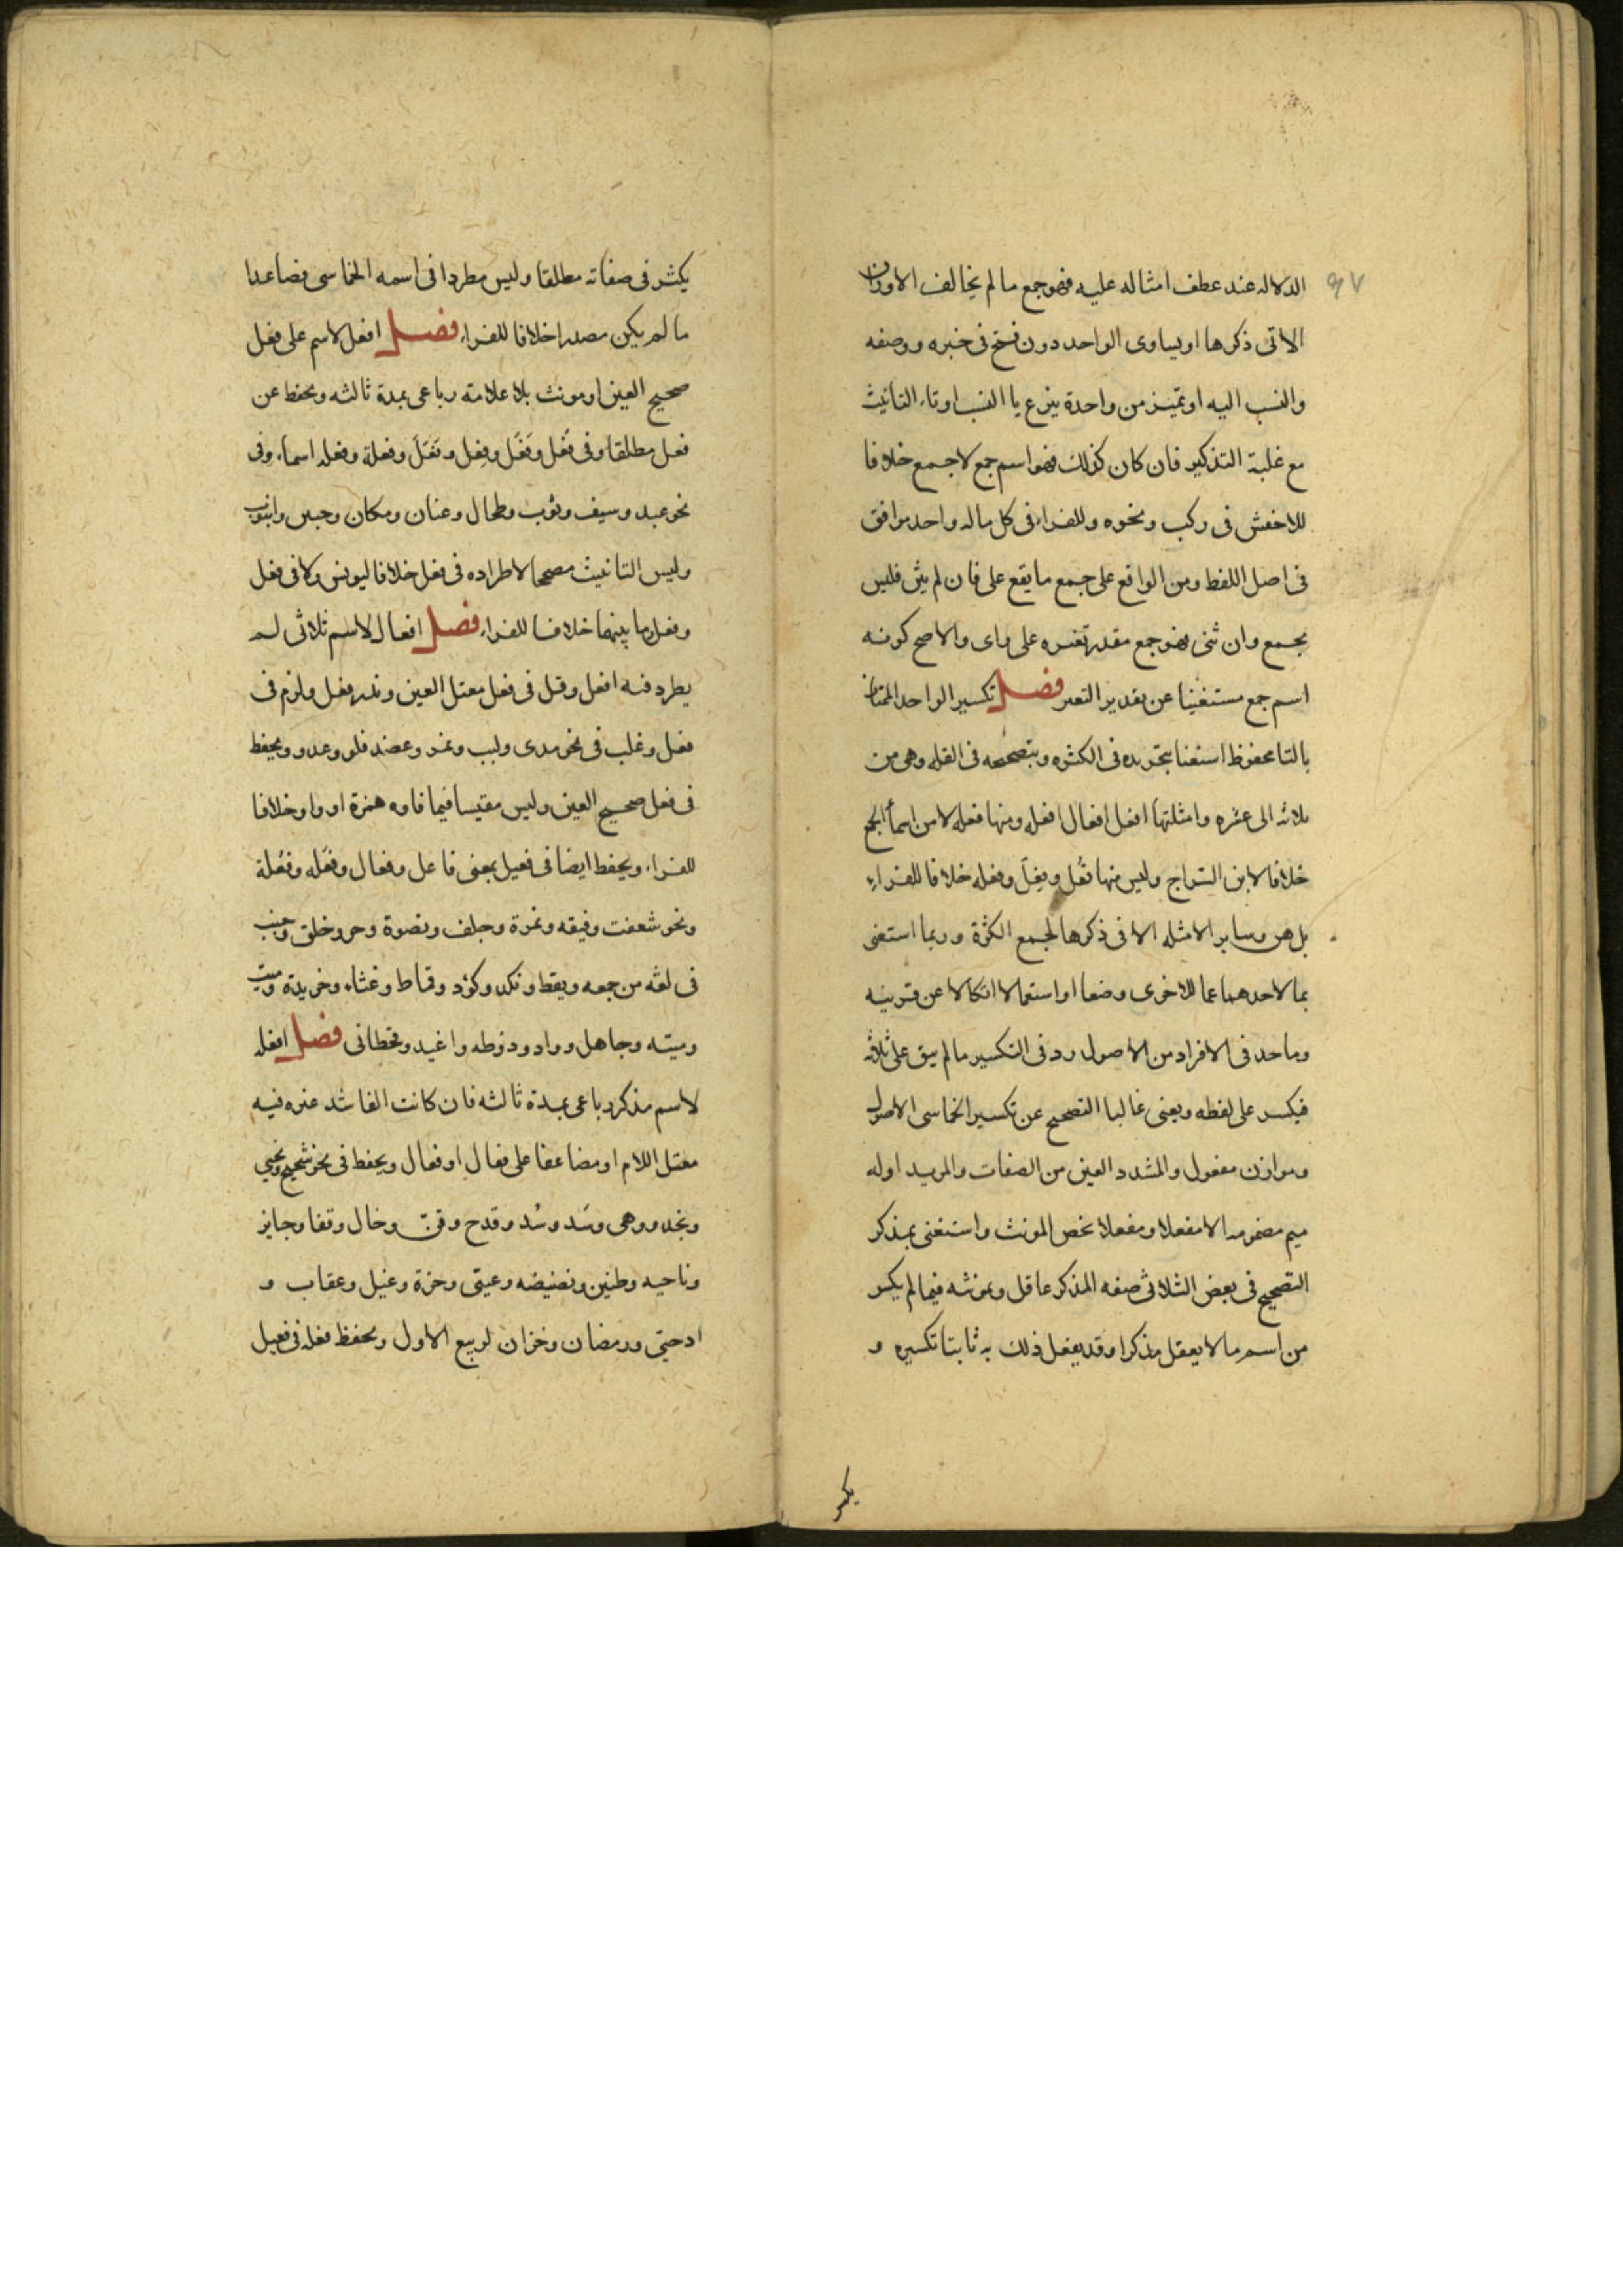 ٩٧
الدلاله عند عطف امثاله عليه فهو جمع ما لم يخالف الاوزان
الاتى ذكرها او يساوى الواحد دون فتح فى خبره ووصفه
والنسب اليه او تميز من واحدة بنزع يا النسب او تاء التانيث
مع غلبة التذكير فان كان كذلك فهو اسم جمع لا جمع خلافا
للاخفش فى ركب ونحوه وللفراء فى كل ماله واحد موافق
فى اصل اللفظ ومن الواقع على جمع ما يقع على فان لم يثن فليس
بجمع وان ثنى فهو جمع مقدر تغيره على راى والاصح كونه
اسم جمع مستغنيا عن تقدير التغير فصل تكسير الواحد الممتاز
بالتا محفوظ استغنا بتجريده فى الكثره وبتصحيحه فى القله وهى من
ثلاثه الى عشره وامثلتها افعل افعال افعله ومنها فعله لا من اسماء الجمع
خلافا لابن السراج وليس منها فُعَل وفِعَل وفعله خلافا للفراء
بل هن وساير الامثله الاتى ذكرها لجمع الكثرة وربما استغنى
بما لاحدهما عما للاخرى وضعا او استعمالا اتكالا عن قرينه
وما حذف فى الافراد من الاصول رد فى التكسير ما لم يبق على ثلاثه
فيكسر على لفظه ويغنى غالبا التصحيح عن تكسير الخماسى الاصول
وموازن مفعول والمشدد العين من الصفات والمزيد اوله
ميم مضمومه الا مفعلا ومفعلا يخص المونث واستغنى بمذكر
التصحيح فى بعض الثلاثى صفه المذكر عاقل وبمونثه فيما لم يكسر
من اسم ما لا يعقل مذكرا وقد يفعل ذلك به ثابتا تكسيره و
يكثر
يكثر فى صفاته مطلقا وليس مطردا فى اسمه الخماسى فصاعدا
ما لم يكن مصدرا خلافا للفراء فصل افعل لاسم على فعل
صحيح العين او مونث بلا علامة رباعى بمدة ثالثه ويحفظ عن
فعل مطلقا وفى فُعُل وفَعُل وفِعَل وفَعَلَ وفعلة وفعله اسماء وفى
نحو عبد وسيف وثوب وطحال وعنان ومكان وجبين وانبوب
وليس التانيث مصححا لاطراده فى فعل خلافا ليونس ولا فى فعل
وفعل وما بينهما خلافا للفراء فصل افعال لاسم ثلاثى لم
يطرد فيه افعل وقل فى فعل معتل العين وندر فعل ولزم فى
فعل وغلب فى نحو مدى ولبب ونمر وعضد فلو وعدو ويحفظ
فى فعل صحيح العين وليس مقيسا فيما فاوه همزة او واو خلافا
للفراء ويحفظ ايضا فى فعيل بمعنى فاعل وفعال وفعَله وفعُلة
ونحو شعفت وفيقه ونمرة وجلف ونضوة وحر وخلق وجنب
فى لغه من جمعه ويقظ ونكد وكؤد وقماط وغثاء وخريدة وميت
وميته وجاهل وواد وذوطه واغيد وقحطانى فصل افعله
لاسم مذكر رباعى بمدة ثالثه فان كانت الفا شد غيره فيه
معتل اللام او مضاعفا على فعال او فعال ويحفظ فى نحو شحيح ونجي
ونجد ووهى وسَد وسُد وقدح وقن وخال وقفا وجايز
وناحيه وطنين ونضيضه وعيتى وحزة وغيل وعقاب و
ادحيّ ورمضان وخزان لربيع الاول ويحفظ فعله فى فعيل